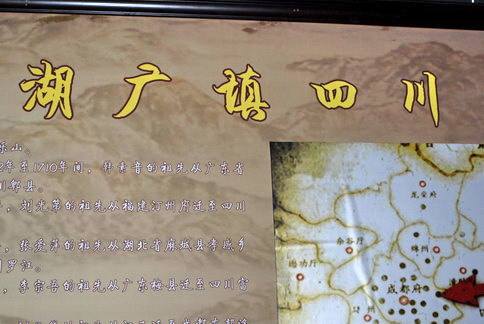 湖广填四川
乐山。
2年至1710年间，韩素音的祖先从广东省
川郫县。
，刘光第的祖先从福建汀州府迁至四川
，张爱萍的祖先从湖北省麻城县孝感乡
罗江。
，李宗吾的祖先从广东梅县迁至四川富
龙安府
杂谷厅
绵州
懋功厅
成都府